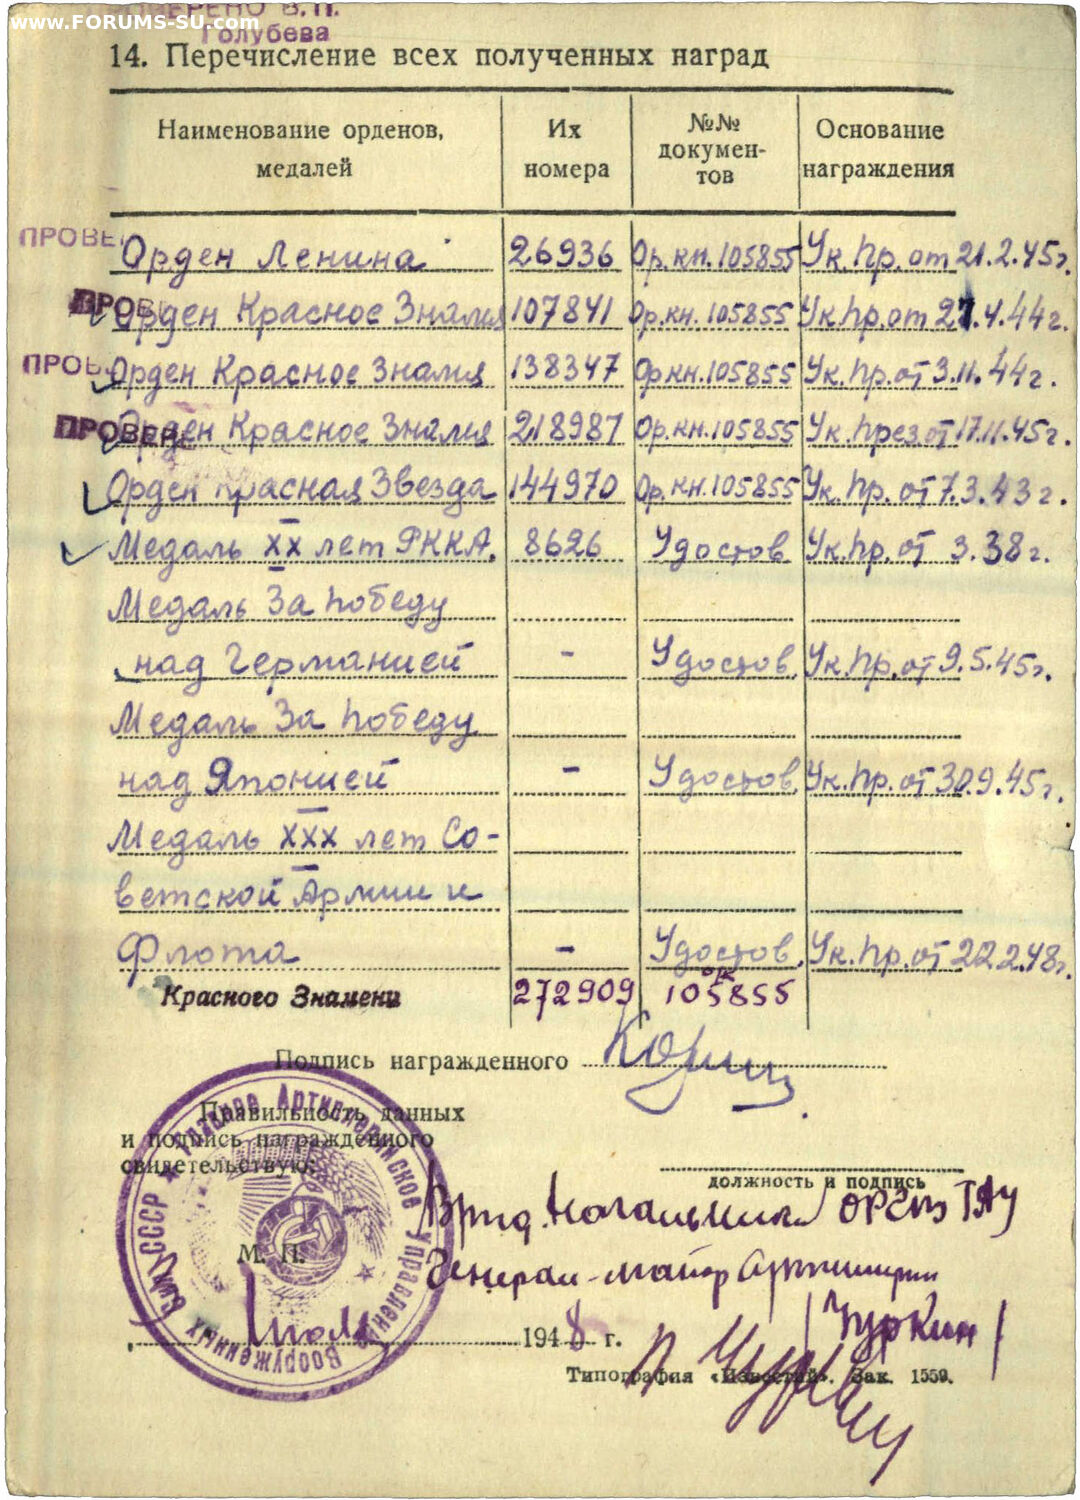 www.FORUMS-SU.com
ПРОВЕРЕНО В.П.
Голубева
14. Перечисление всех полученных наград
Наименование орденов, медалей
Их номера
№№ документов
Основание награждения
ПРОВЕ
Орден Ленина 26936 Ор.кн.105855 Ук.Пр.от 21.2.45г.
ПРОВЕ
Орден Красное Знамя 107841 Ор.кн.105855 Ук.Пр.от 27.4.44г.
ПРОВ
Орден Красное Знамя 138347 Ор.кн.105855 Ук.Пр.от 3.11.44г.
ПРОВЕРЕ
Орден Красное Знамя 218987 Ор.кн.105855 Ук.През от 17.11.45г.
Орден Красная Звезда 144970 Ор.кн.105855 Ук.Пр.от 7.3.43г.
Медаль XX лет РККА. 8626 Удостов. Ук.Пр.от 3.38г.
Медаль За Победу
над Германией - Удостов. Ук.Пр.от 9.5.45г.
Медаль За Победу
над Японией - Удостов. Ук.Пр.от 30.9.45г.
Медаль XXX лет Со-
ветской Армии и
Флота - Удостов. Ук.Пр.от 22.2.48г.
Красного Знамени 272909 ок 105855
Подпись награжденного
Правильность данных
и подпись награжденного
свидетельствую:
должность и подпись
Врид. Начальника ОРГПЭ ГАУ
Генерал-майор Артиллерии
/Чуркин/
М. П.
Главное Артиллерийское Управление Вооруженных Сил СССР
1948 г.
Типография «Известий». Зак. 1559.